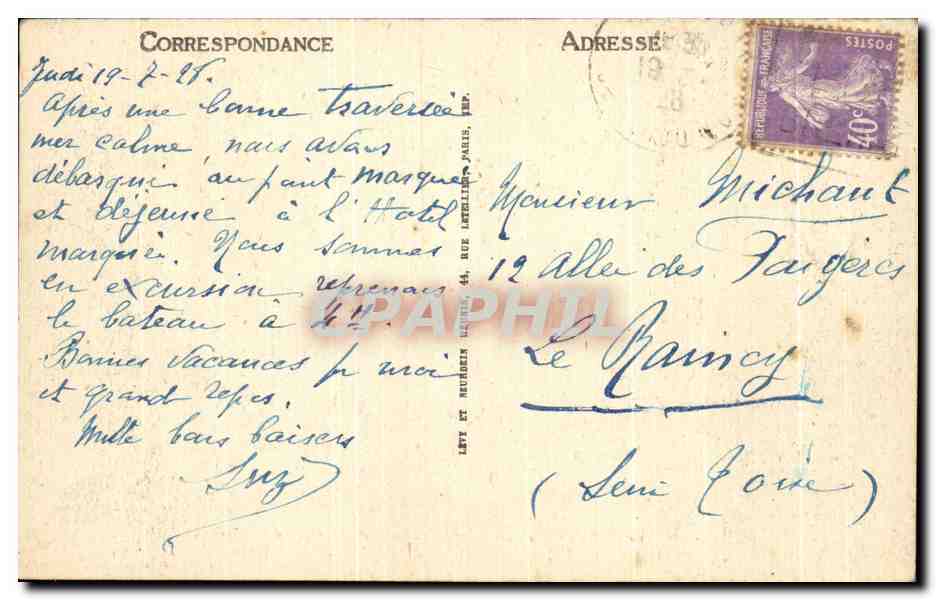 CORRESPONDANCE
Judi 19-7-28.
après une bonne traversée
mer calme, nous avons
débarqué au point marqué
et déjeuné à l'Hotel
marqué. Nous sommes
en excursion reprenons
le bateau à 4H.
Bonnes vacances pr moi
et grand repos.
Mille bons baisers
Suz
LÉVY ET NEURDEIN RÉUNIS, 44, RUE LETELLIER, PARIS, IMP.
ADRESSE
RÉPUBLIQUE FRANÇAISE
POSTES
40c
Monsieur Michaut
12 allée des Fougères
Le Raincy
(Seine & Oise)
CPAPHIL